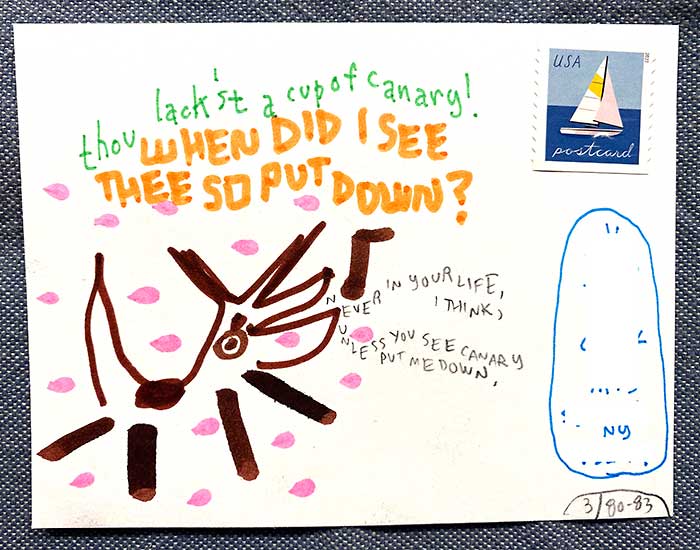 thou lack'st a cup of canary!
WHEN DID I SEE
THEE SO PUT DOWN?
NEVER IN YOUR LIFE,
I THINK,
UNLESS YOU SEE CANARY
PUT ME DOWN.
USA
postcard
NY
3/80-83